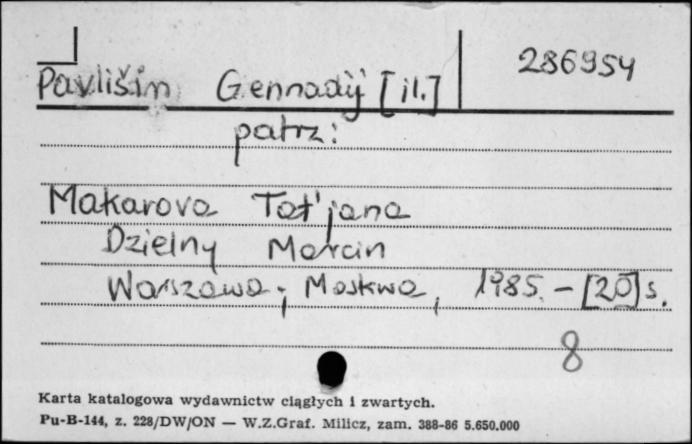 286954
Pavlišin Gennadij [il.]
patrz:
Makarova Tat'jana
Dzielny Marcin
Warszawa ; Moskwa, 1985. – [20] s.
8
Karta katalogowa wydawnictw ciągłych i zwartych.
Pu-B-144, z. 228/DW/ON — W.Z.Graf. Milicz, zam. 388-86 5.650.000